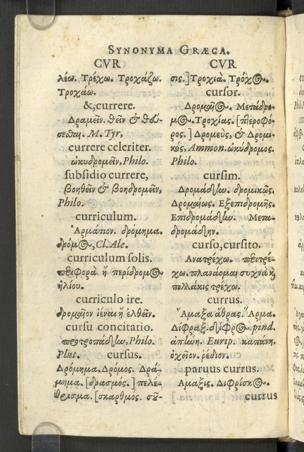 SYNONYMA GRÆCA.
CVR
λέω. Τρέχω. Τροχάζω.
Τροχάω.
&, currere.
Δραμεῖν. θεῖν &
M. Tyr.
currere celeriter.
ὠκυδρομεῖν, Philo.
subsidio currere,
βοηθεῖν & βοηδρομεῖν,
Philo.
curriculum.
Ἁρμάτιον. δρόμημα.
δρόμος, Cl. Ale.
curriculum solis.
περιφορὰ ἢ περίδρομος
ἡλίου.
curriculo ire.
δρομαῖον ἰέναι ἢ ἐλθεῖν.
cursu concitatio.
προτροπάδην, Philo.
Plut. cursus.
Δρόμημα. Δρόμος. Δρά-
μημα. [δρασμὸς.] πελέ-
θρισμα. [σκαρθμὸς. σύ-
CVR
σις.] Τροχιά. Τρόχος.
cursor.
Δρομαῖος. Μεταδρο-
Τροχίας. [
ρος.] Δρομεὺς, & Δρομι-
κὸς, Ammon. ὠκύδρομος.
Philo.
cursim.
Δρομάδην. δρομικῶς.
Δρομαίως. Ἐξεπιδρομῆς.
Ἐπιδρομάδην. Μετα-
δρομάδην.
curso, cursito.
Ἀνατρέχω. περιτρέ-
χω. πλανάομαι συχνά ἢ
πολλάκις τρέχω.
currus.
Ἅμαξα ἅβρας. Ἅρμα.
Δίφραξ. δίφρος. pind.
ἀπήνη. Eurip. καπάνη.
ὄχεῖον. ῥέδιον.
paruus currus.
Ἁμαξὶς. Διφρίσκος.
currus